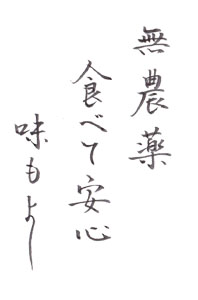 無農薬
食べて安心
味もよし